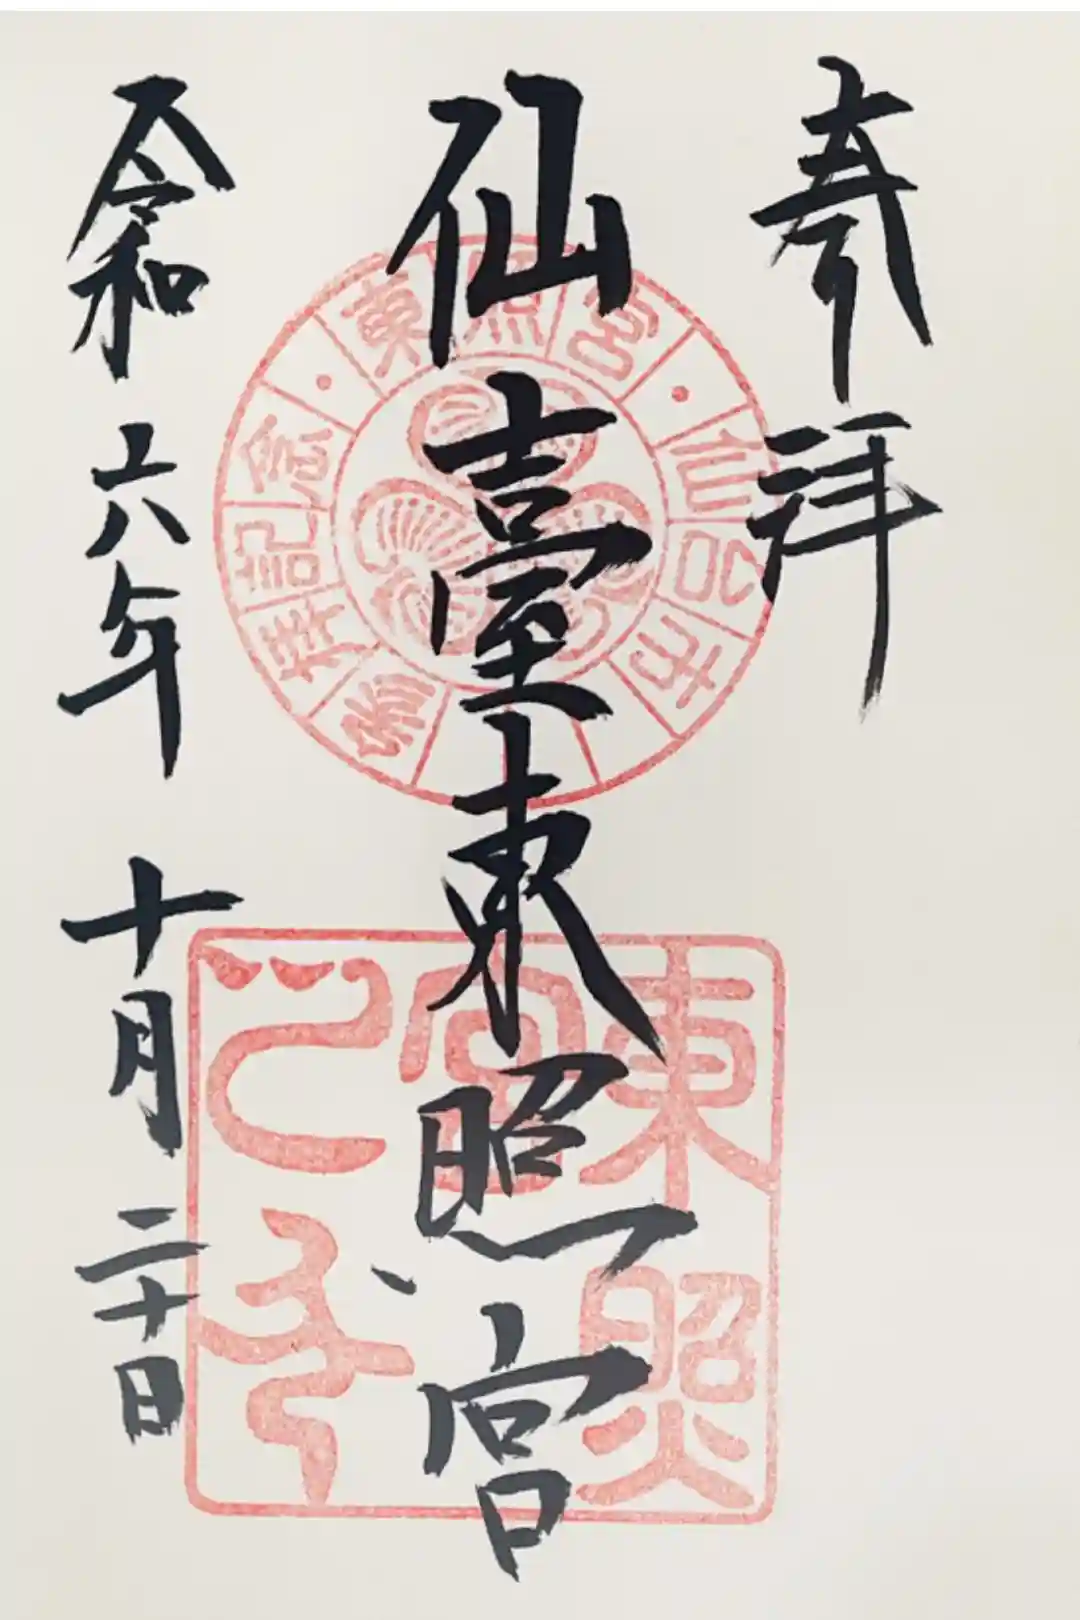 奉拝
仙臺東照宮
令和六年 十月二十日
東照宮
仙台市
参拝記念
東照宮